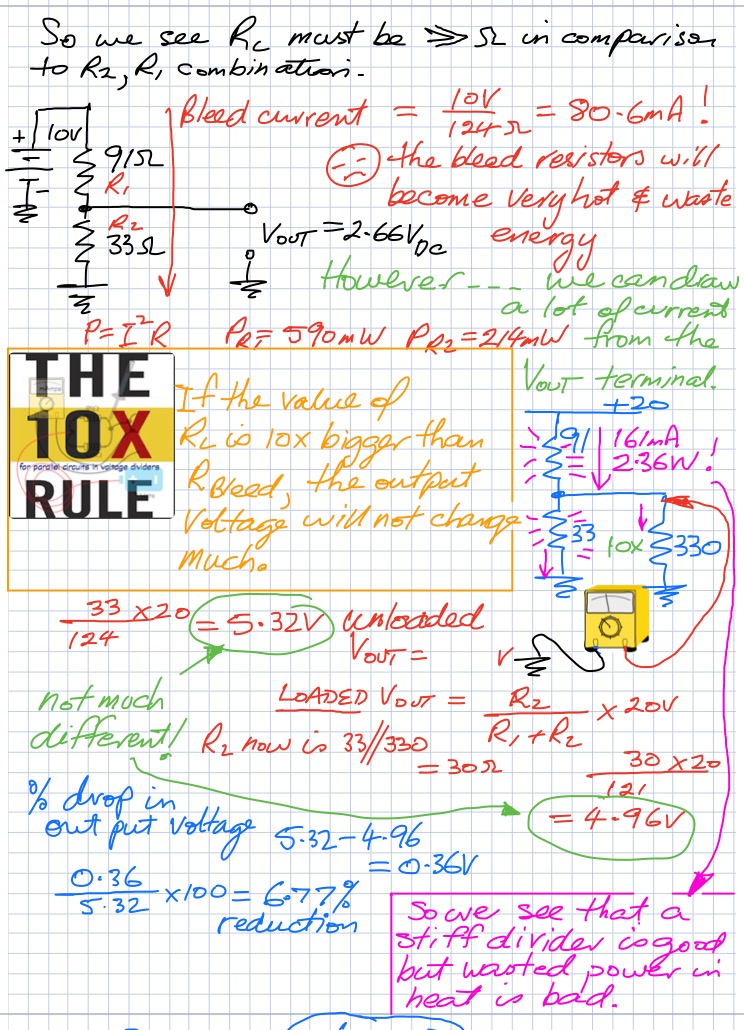 So we see RL must be >> Ω in comparison
to R2, R1 combination.
Bleed current = 10V / 124Ω = 80.6mA!
+ 10V
91Ω
R1
the bleed resistors will
become very hot & waste
energy
R2
33Ω
VOUT = 2.66VDC
However --- we can draw
a lot of current
from the
VOUT terminal.
P=I²R PR1 = 590mW PR2 = 214mW
THE
10X
for parallel circuits in voltage dividers
RULE
If the value of
RL is 10x bigger than
RBleed, the output
Voltage will not change
much.
+20
91 161mA
2.36W!
33 10x 330
33 x20 / 124 = 5.32V unloaded
VOUT =
V
not much
different!
LOADED VOUT = R2 / R1+R2 x 20V
R2 now is 33//330
= 30Ω
30 x20 / 121
= 4.96V
% drop in
out put voltage
5.32-4.96
= 0.36V
0.36 / 5.32 x100 = 6.77%
reduction
So we see that a
stiff divider is good
but wasted power in
heat is bad.